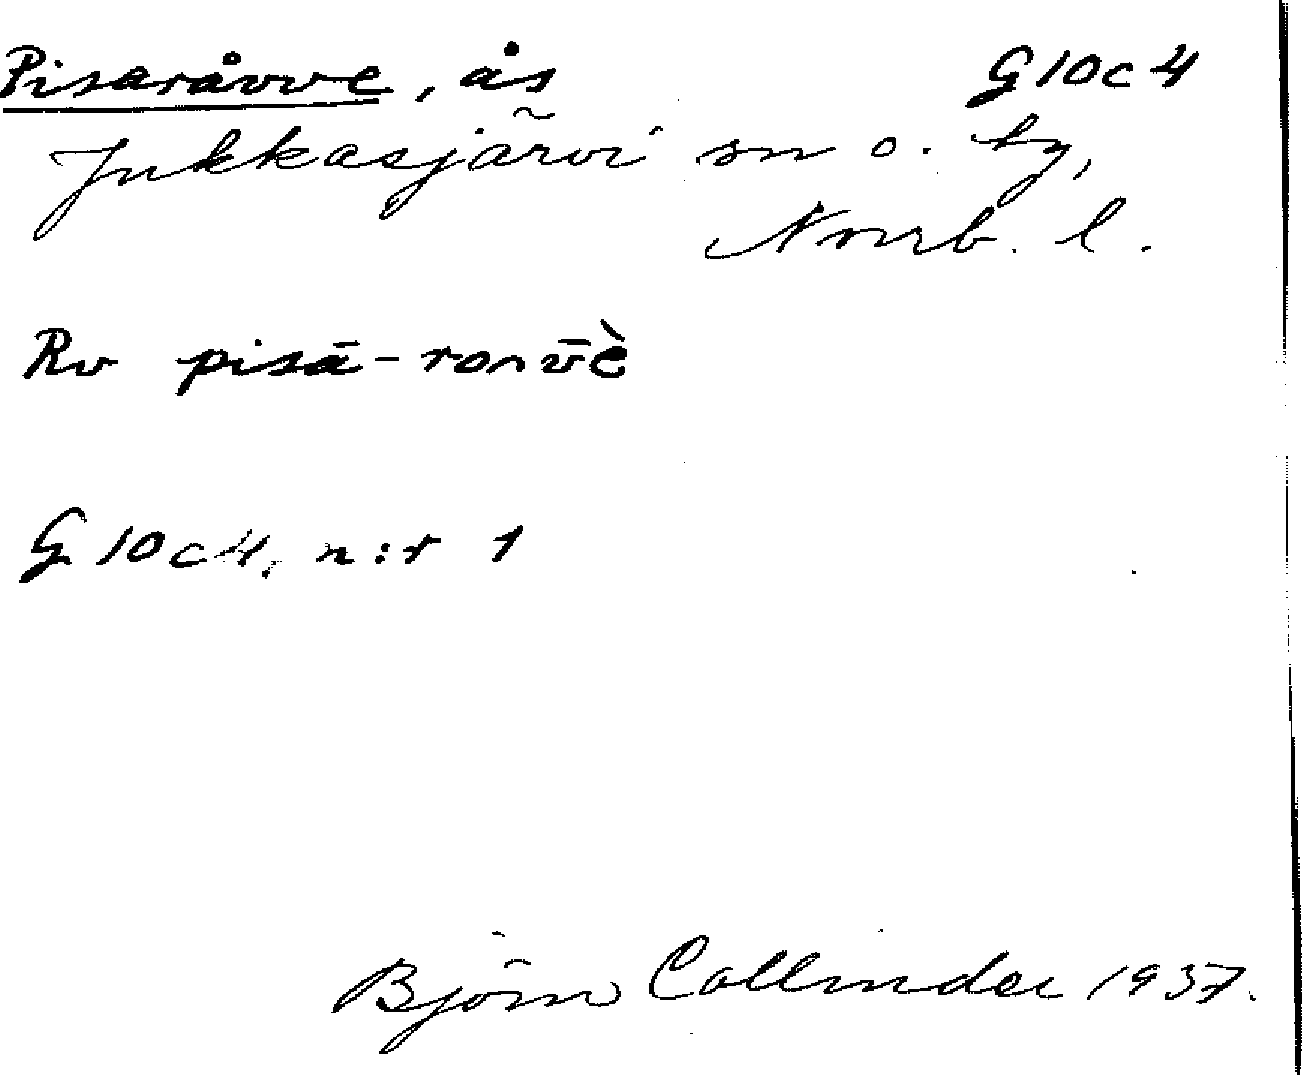 Pisaråvve, ås G10c4
Jukkasjärvi sn o. ty,
Norrb. l.
Rv pisā-ronv̄è
G10c4, n:r 1
Björn Collinder 1937.